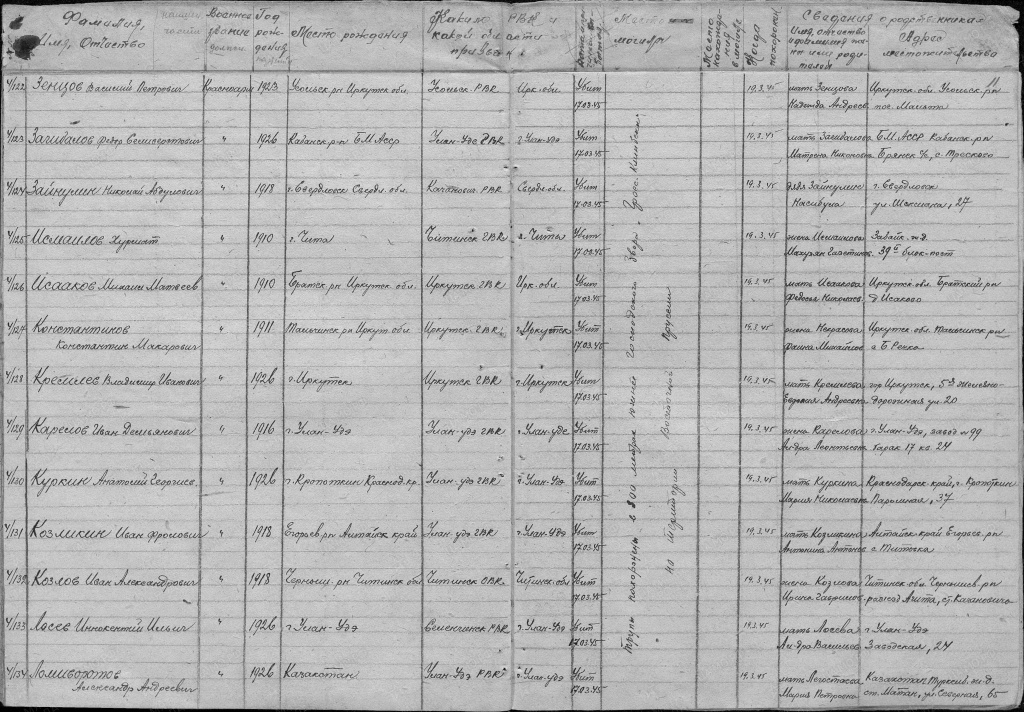 Фамилия, Имя, Отчество
Военное звание
Год рождения
Место рождения
Каким РВК и какой области призван
Место могилы
Место нахождения в могиле
Когда похоронен
Сведения о родственниках
Имя, отчество
Адрес местожительства
4/122 Зенцов Василий Петрович Красноарм 1923 Усольск. рн Иркутск обл. Усольск. РВК Ирк. обл. Убит 19.3.45 мать Зенцова Иркутск. обл. Усольск. рн
17.03.45 Надежда Андреев. пос. Мальта
4/123 Загибалов Федор Селиверстович " 1926 Кабанск р-н Б.М. АССР Улан-Удэ ГВК г. Улан-удэ Убит 19.3.45 мать Загибалова Б.М. АССР Кабанск. рн
17.03.45 Матрена Никоновн. Брянск с/с, с. Троское
4/124 Зайнулин Николай Абдулович " 1918 г. Свердловск Свердл. обл. РВК Свердл. обл. Убит 19.3.45 дядя Зайнулин г. Свердловск
17.03.45 ул. 27
4/125 Исмаилов " 1910 г. Чита Читинск ГВК г. Чита Убит 19.3.45 жена Исмаилова Забайк. ж.д.
39й блок-пост
4/126 Исааков Михаил Матвеев " 1910 Братск рн Иркутск обл. Иркутск ГВК Ирк. обл. Убит 19.3.45 мать Исакова Иркутск. обл. Братский рн
17.03.45 Федосья Николаев. д Исаково
4/127 Константинов " 1911 Иркут. обл. Иркутск. ГВК г. Иркутск Убит 19.3.45 жена Некрасова Иркутск. обл. рн
Константин Макарович 17.03.45 Михайлов
4/128 Кремлев Владимир Иванович " 1926 г. Иркутск Иркутск ГВК г. Иркутск Убит 19.3.45 мать Кремлева гор Иркутск, 5я Железно-
17.03.45 Евдокия Андреевна дорожная ул. 20
4/129 Карелов Иван Демьянович " 1916 г. Улан-Удэ Улан-удэ ГВК г. Улан-удэ Убит 19.3.45 жена Карелова г. Улан-Удэ, завод № 99
17.03.45 Ал-дра Леонтьевн барак 17 кв. 24
4/130 Куркин Анатолий Георгиев. " 1926 г. Кропоткин Краснод. кр. Улан-удэ ГВК г. Улан-Удэ Убит 19.3.45 мать Куркина Краснодарск. край, г. Кропоткин
17.03.45 Мария Николаевна 37
4/131 Козликин Иван Фролович " 1918 Егорьев. рн Алтайск край Улан-удэ ГВК г. Улан-Удэ Убит 19.3.45 мать Козликина Алтайск. край Егорьев. рн
17.03.45 Антонина Антонов с. Титовка
4/132 Козлов Иван Александрович " 1918 Черныш. рн Читинск обл Читинск ОВК Читинск. обл Убит 19.3.45 жена Козлова Читинск обл. Чернышев. рн
17.03.45 Ирина Гаврилов. разъезд Агита, ст. Каганович
4/133 Лосев Иннокентий Ильич " 1926 г Улан-Удэ РВК г. Улан-Удэ Убит 19.3.45 мать Лосева г Улан-Удэ
17.03.45 Ал-дра Васильев Заводская, 24
4/134 Ломиворотов " 1926 Казахстан Улан-Удэ РВК г. Улан-удэ Убит 19.3.45 мать Казахстан Турксиб. ж.д.
Александр Андреевич 17.03.45 Мария Петровна ул. Северная, 65
Трупы похоронены в 800 метрах южнее господского двора
на территории Восточной Пруссии